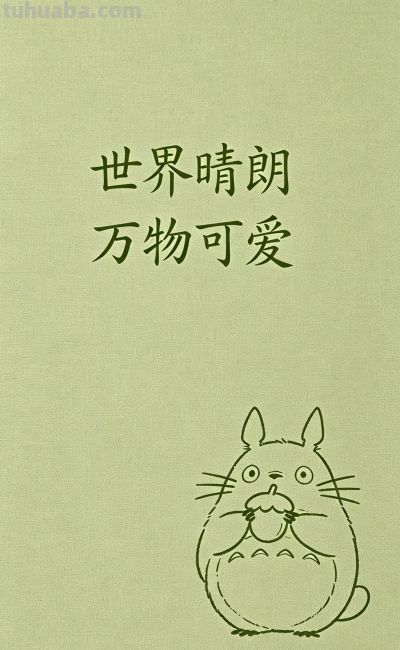 tuhuaba.com
世界晴朗
万物可爱